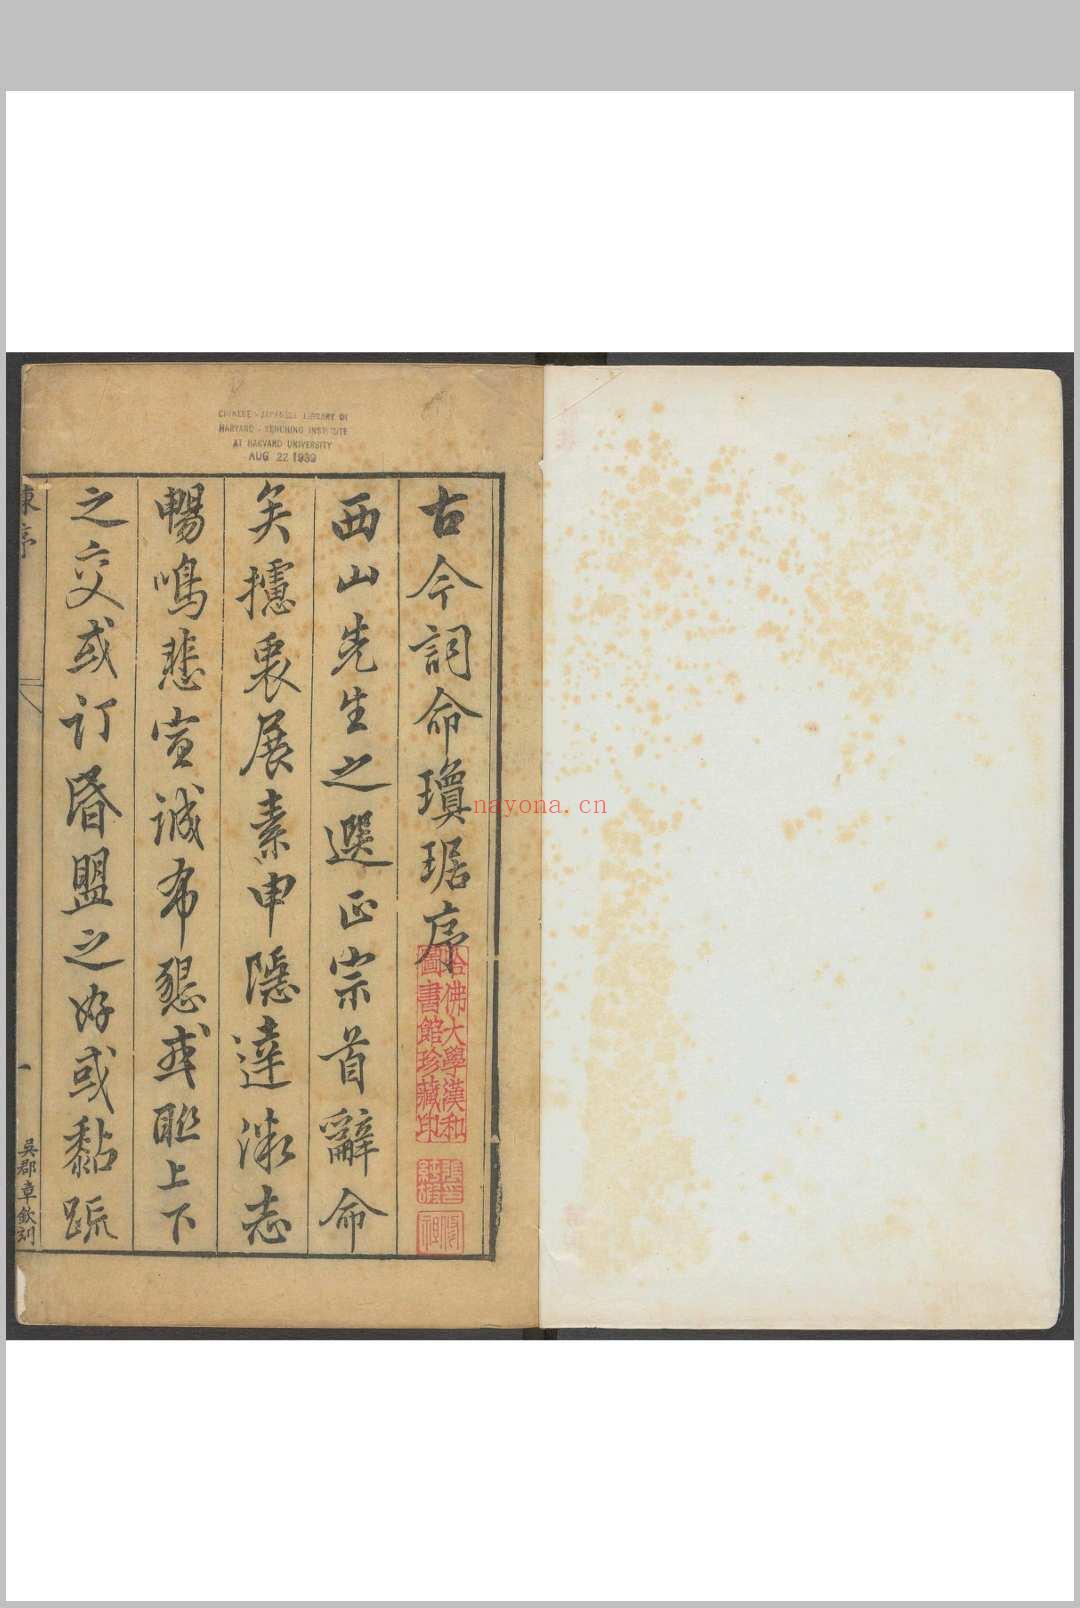 CHINESE-JAPANESE LIBRARY OF
HARVARD-YENCHING INSTITUTE
AT HARVARD UNIVERSITY
AUG 22 1939
古今詞命瓊琚序
西山先生之選正宗首辭命
矣攄衷展素申隱達微志
暢鳴悲宣誠布懇或聯上下
之交或訂昏盟之好或黏疏
陳序
一
吳郡章欽刻
哈佛大學漢和
圖書館珍藏印
nayona.cn